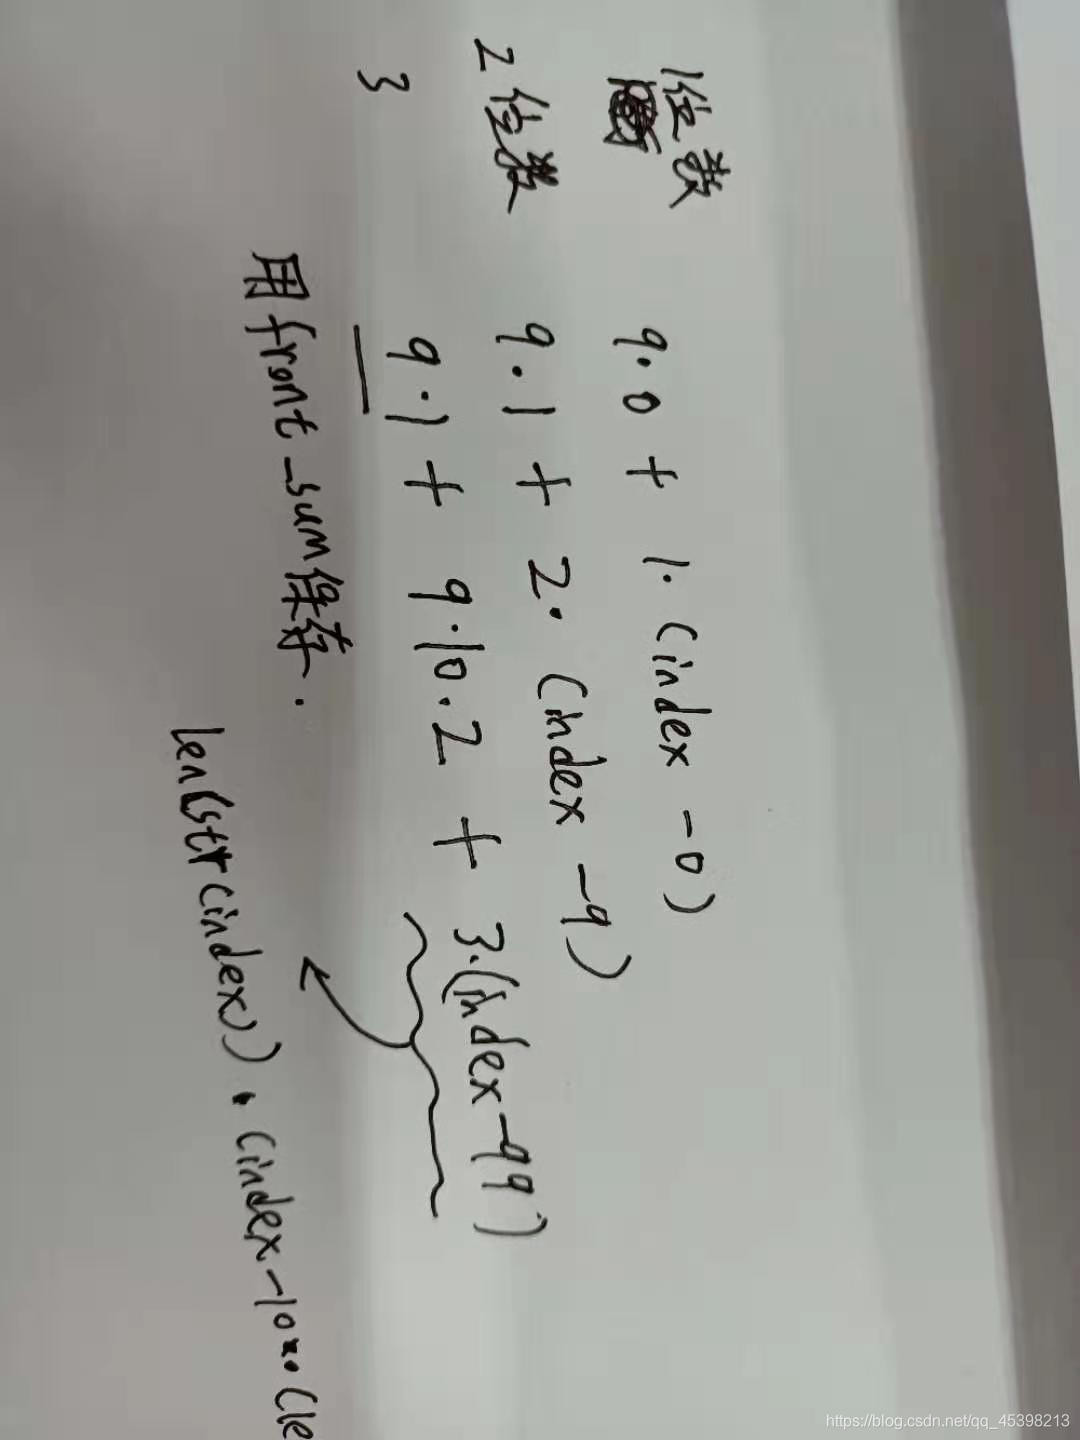 1位数 9·0 + 1·(index -0)
2位数 9·1 + 2·(index -9)
3 9·1 + 9·10·2 + 3·(index-99)
用front_sum保存.
len(str(index))·(index-10**(le
https://blog.csdn.net/qq_45398213